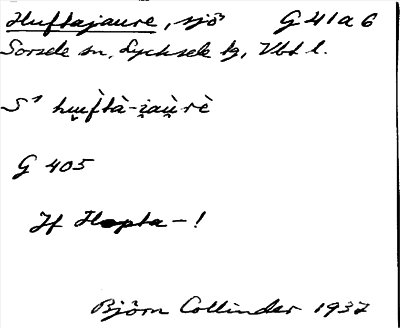 Huftajaure, sjö G 41 a 6
Sorsele sn, Lycksele tg, Vbt l.
S¹ hu̯u̯ftà-i̯au̯rè
G 405
Jf Hopta-!
Björn Collinder 1937